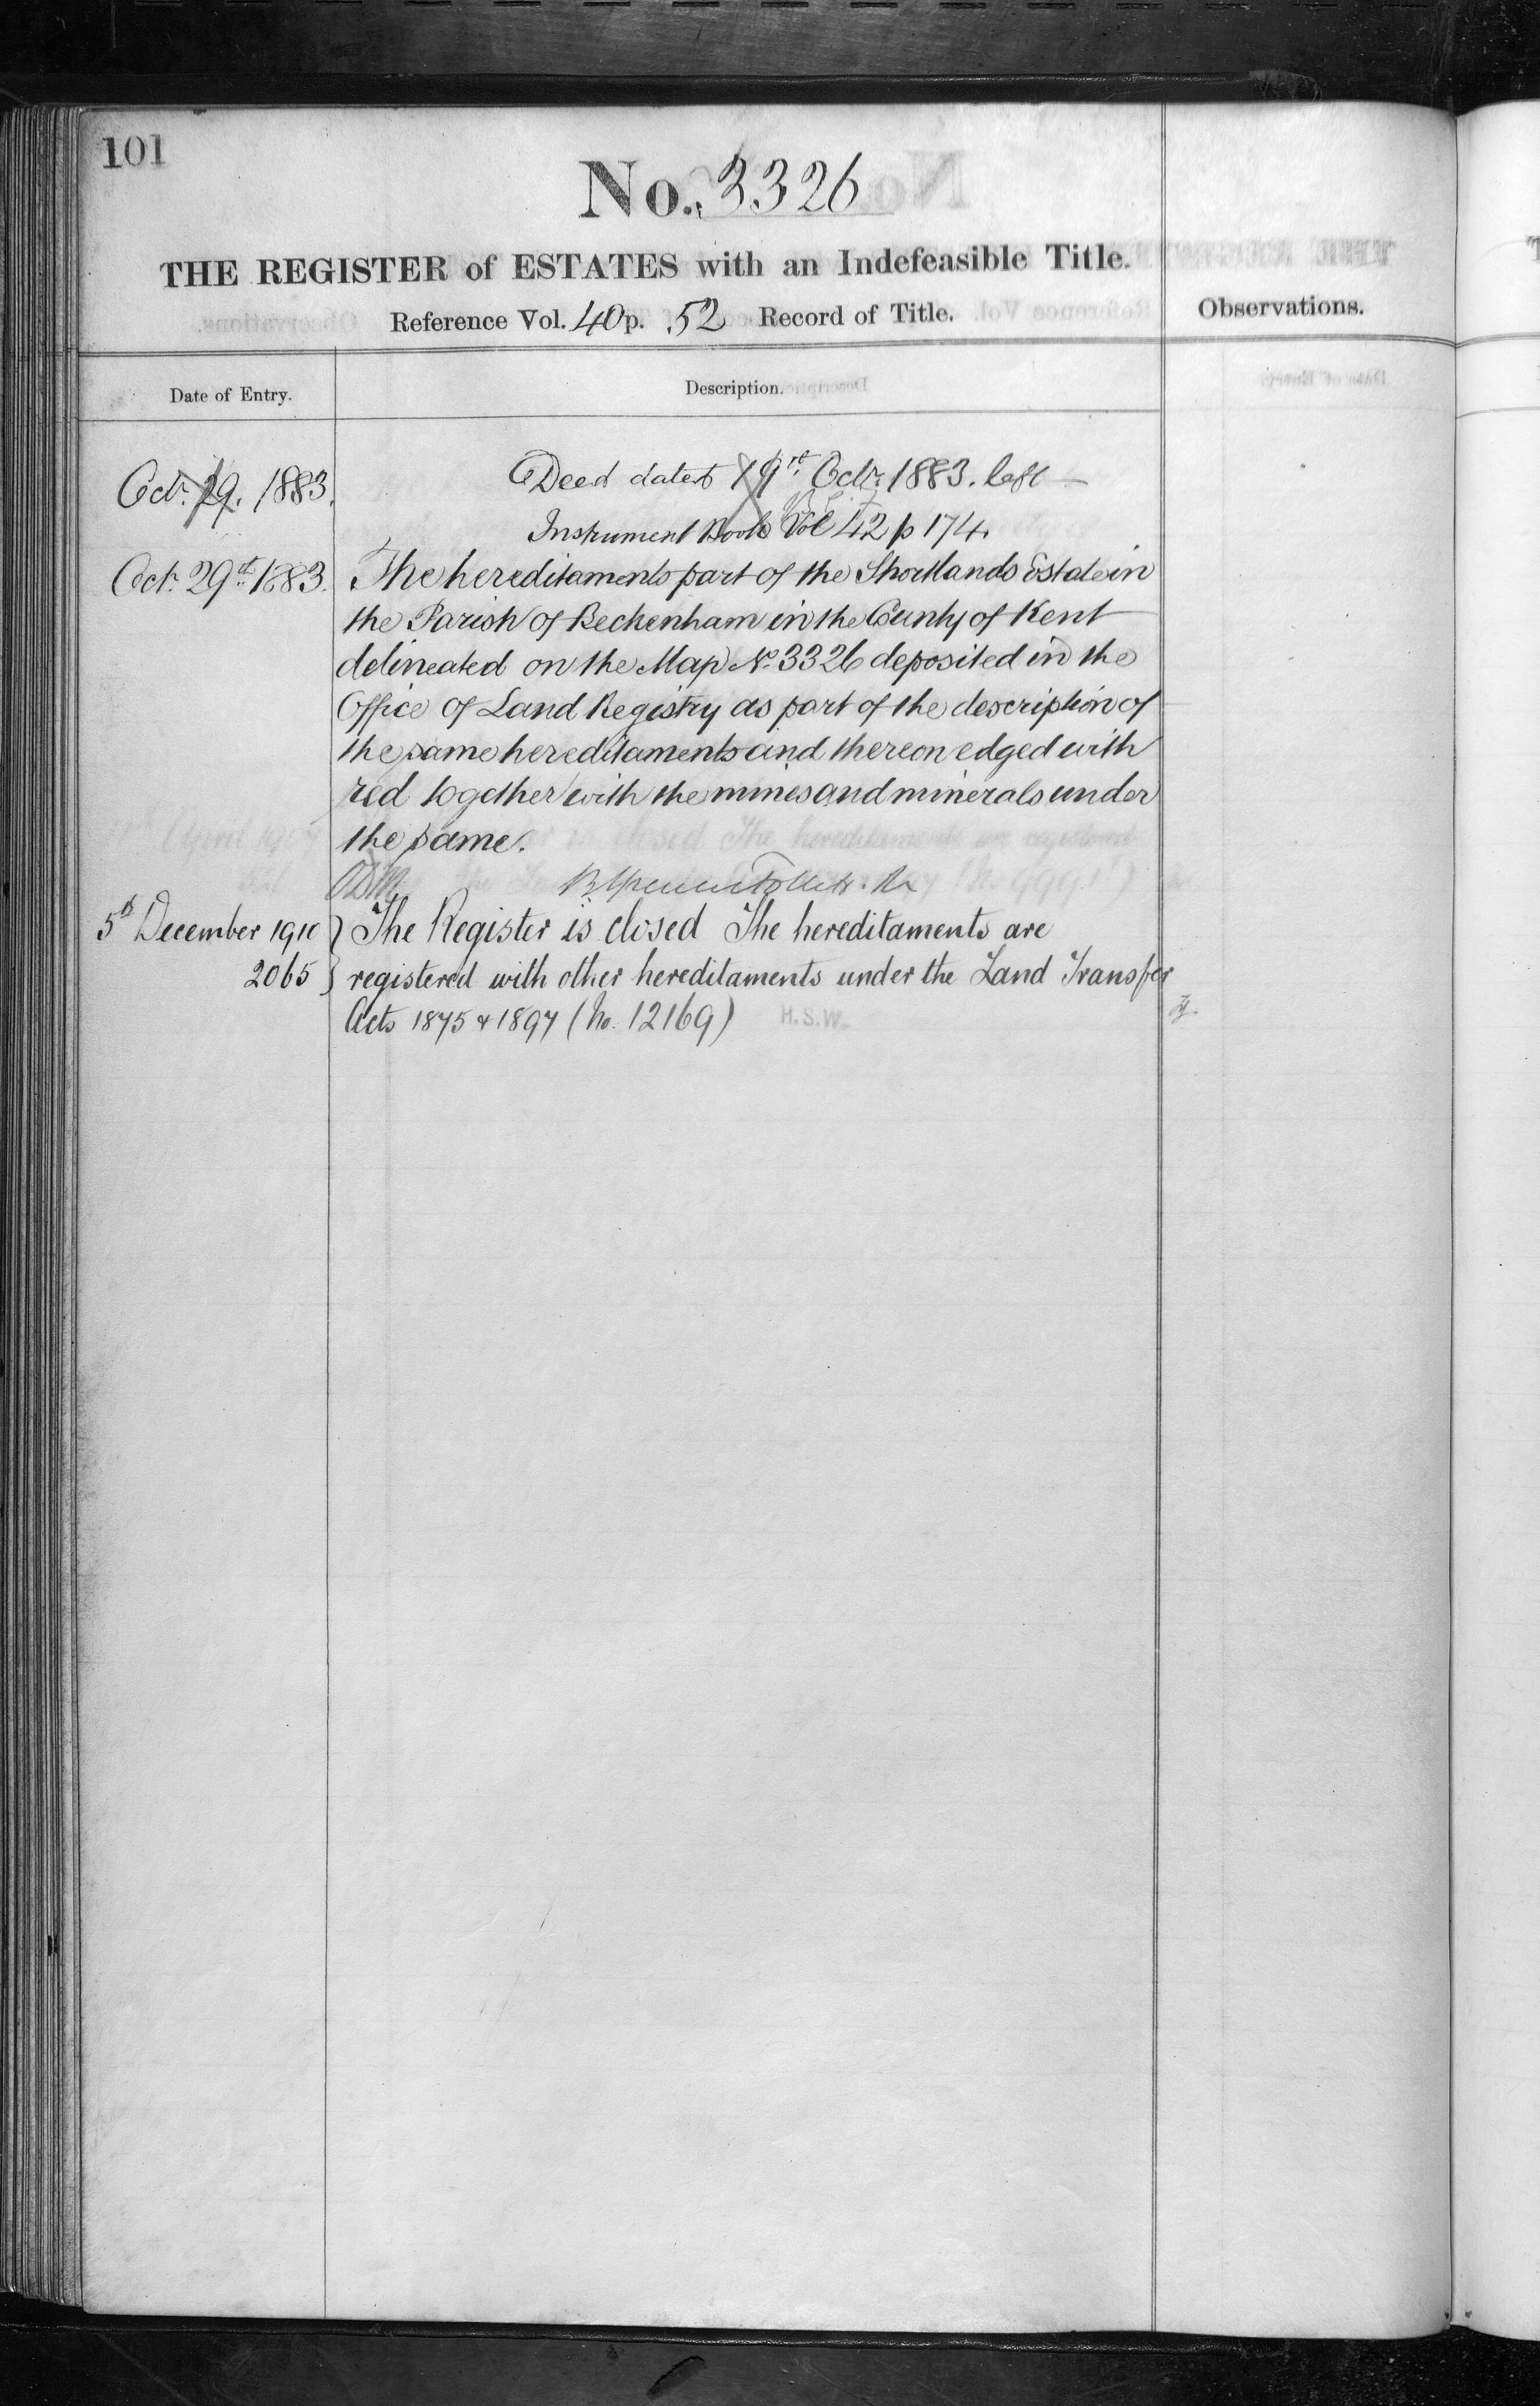 101
No. 3326
THE REGISTER of ESTATES with an Indefeasible Title.
Reference Vol. 40 p. 52 Record of Title.
Observations.
Date of Entry.
Description.
Octr. 29. 1883.
Deed dated 19th Octr. 1883. left
Instrument Book Vol 42 p 174.
Oct. 29th 1883.
The hereditaments part of the Shortlands Estate in
the Parish of Beckenham in the County of Kent
delineated on the Map No. 3326 deposited in the
Office of Land Registry as part of the description of
the same hereditaments and thereon edged with
red together with the mines and minerals under
the same.
5th December 1910
2065
The Register is closed The hereditaments are
registered with other hereditaments under the Land Transfer
Acts 1875 & 1897 (No. 12169)
H.S.W.